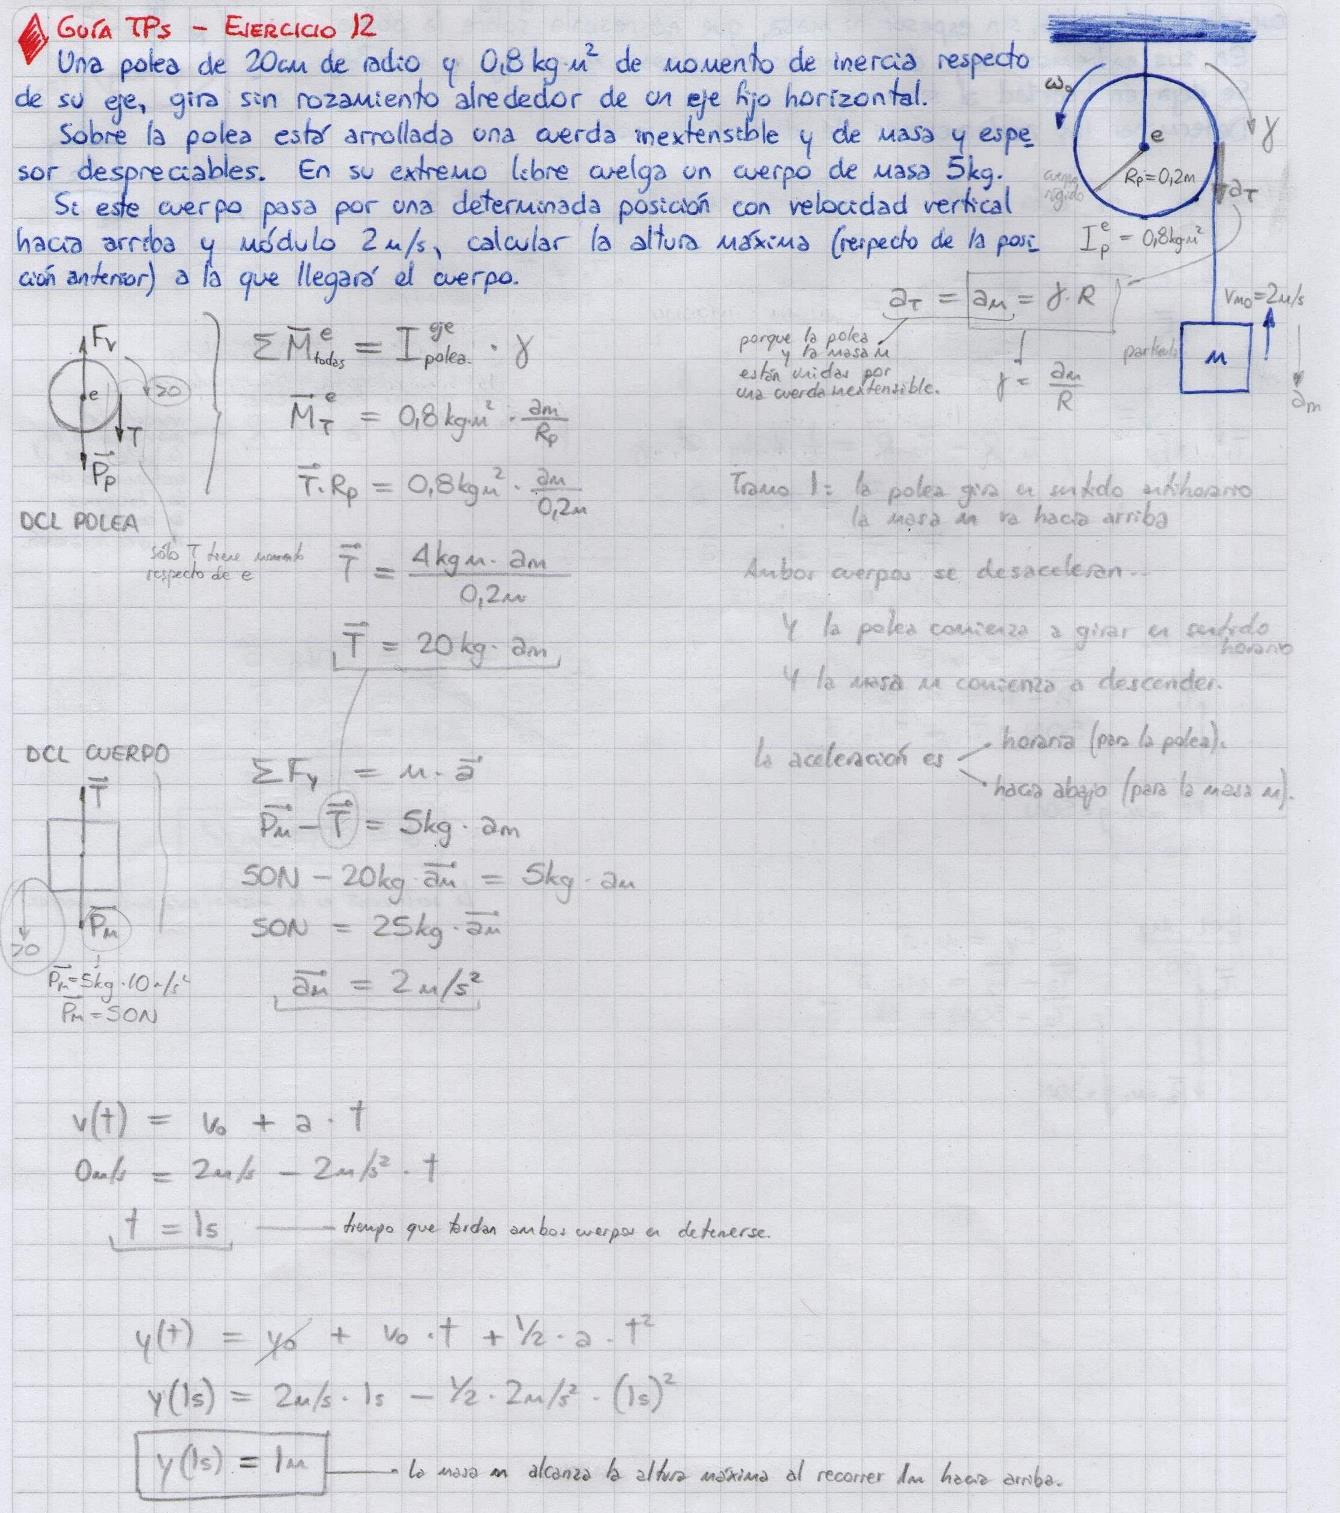 GUÍA TPs - EJERCICIO 12
Una polea de 20cm de radio y 0,8 kg·m² de momento de inercia respecto
de su eje, gira sin rozamiento alrededor de un eje fijo horizontal.
Sobre la polea está arrollada una cuerda inextensible y de masa y espe-
sor despreciables. En su extremo libre cuelga un cuerpo de masa 5kg.
Si este cuerpo pasa por una determinada posición con velocidad vertical
hacia arriba y módulo 2 m/s, calcular la altura máxima (respecto de la posi-
ción anterior) a la que llegará el cuerpo.
ω₀
γ
e
Rp=0,2m
cuerpo
rígido
aT
I_p^e = 0,8kgm²
aT = am = γ·R
vmo=2m/s
porque la polea
y la masa m
están unidas por
una cuerda inextensible.
γ = am/R
partícula
m
am
Fv
e
>0
T
Pp
DCL POLEA
sólo T tiene momento
respecto de e
ΣM_todas^e = I_polea^eje · γ
M_T^e = 0,8kgm² · am/Rp
T·Rp = 0,8kgm² · am/0,2m
T = 4kgm·am/0,2m
T = 20kg·am
Tramo 1: la polea gira en sentido antihorario
la masa m va hacia arriba
Ambos cuerpos se desaceleran...
Y la polea comienza a girar en sentido
horario
Y la masa m comienza a descender.
la aceleración es
horaria (para la polea).
hacia abajo (para la masa m).
DCL CUERPO
T
Pm
>0
Pm=5kg·10m/s²
Pm=50N
ΣFy = m·a
Pm - T = 5kg·am
50N - 20kg·am = 5kg·am
50N = 25kg·am
am = 2m/s²
v(t) = v₀ + a·t
0m/s = 2m/s - 2m/s²·t
t = 1s
tiempo que tardan ambos cuerpos en detenerse.
y(t) = y₀ + v₀·t + 1/2·a·t²
y(1s) = 2m/s·1s - 1/2·2m/s²·(1s)²
y(1s) = 1m
la masa m alcanza la altura máxima al recorrer 1m hacia arriba.